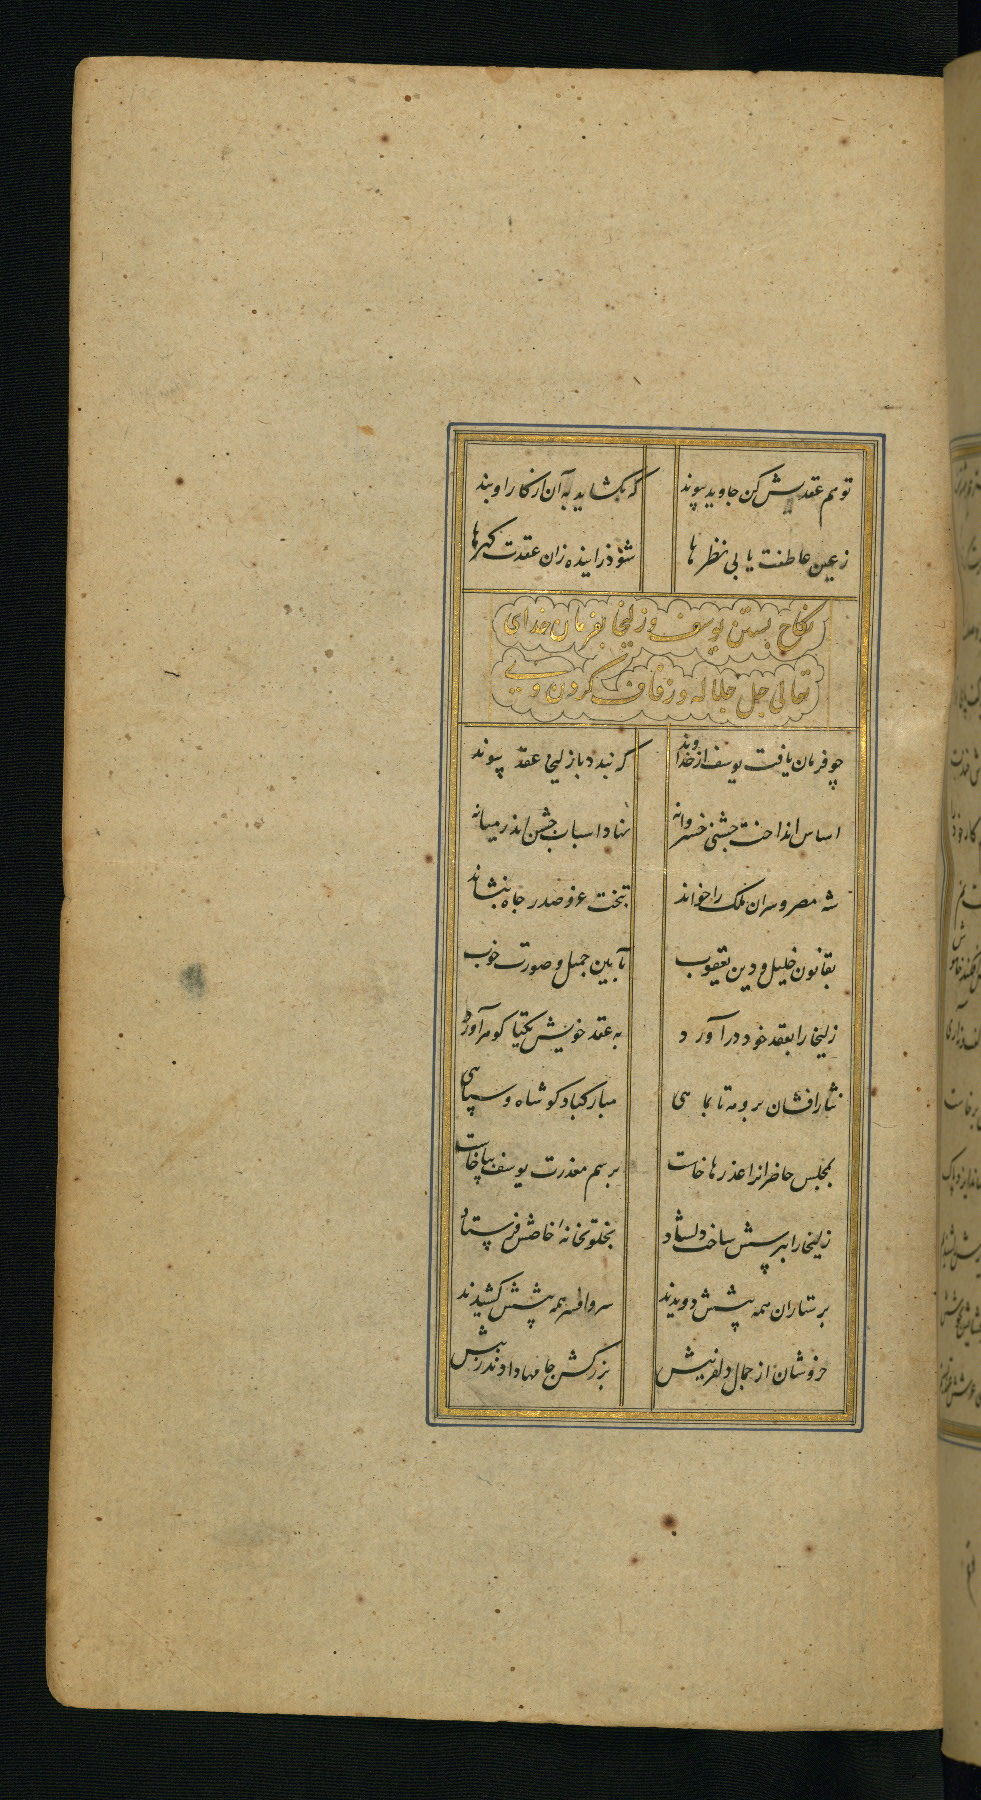 تو هم عقدش کن جاوید پیوند
که بگشاید به آن از کار او بند
ز عین عاطفت یابی نظرها
شود زاینده زان عقدت گهرها
نکاح بستن یوسف وزلیخا بفرمان خدای
تعالی جل جلاله وزفاف کردن وی
چو فرمان یافت یوسف از خداوند
که بندد با زلیخا عقد پیوند
اساس انداخت جشنی خسروانه
نهاد اسباب جشن اندر میانه
شه مصر و سران ملک را خواند
بتخت عز و صدر جاه بنشاند
بقانون خلیل و دین یعقوب
بآیین جمیل و صورت خوب
زلیخا را بعقد خود درآورد
به عقد خویش یکتا گوهر آورد
نثارافشان برو مه تا بماهی
مبارکباد گو شاه و سپاهی
برسم معذرت یوسف بپا خاست
بمجلس حاضرانرا عذرها خاست
زلیخا را بپرسش ساخت دلشاد
بخلوتخانه خاصش فرستاد
پرستاران همه پیشش دویدند
سر و افسر همه پیشش کشیدند
خروشان از جمال دلفریبش
بزرکش جامها دادند زیبش